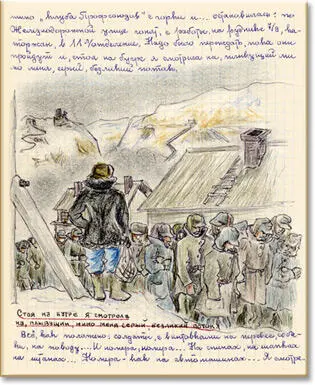 мимо „клуба Профсоюзов" с горки и... остановилась: по
Железнодорожной улице гонят, с работы, на руднике 7/8, ка-
торжан, в 11 Лаготделение. Надо было переждать, пока они
пройдут и, стоя на бугре я смотрела на, плывущий ми-
мо меня, серый, безликий поток.
Стоя на бугре я смотрела
на, плывущий, мимо меня серый, безликий поток.
Всё, как положено: солдаты, с винтовками на перевес, соба-
ки, на поводу... И номера, номера... На спинах, на шапках
на штанах... Номера - как на автомашинах... Я смотре-